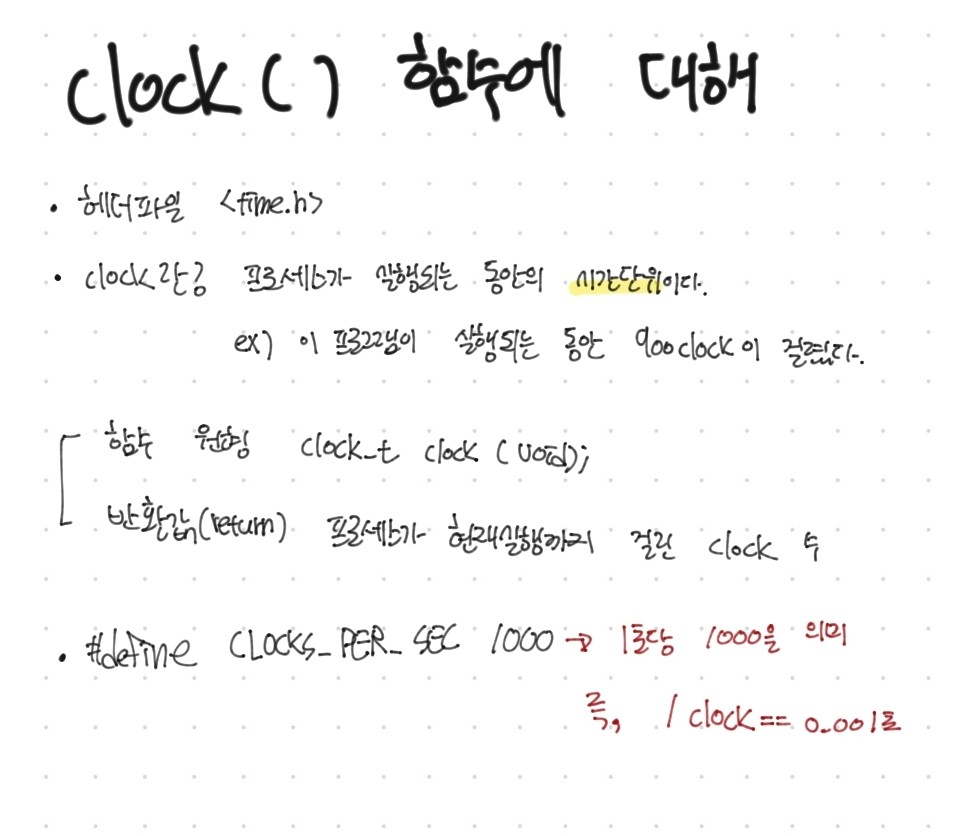 clock() 함수에 대해
• 헤더파일 <time.h>
• clock란? 프로세스가 실행되는 동안의 시간단위이다.
ex) 이 프로그램이 실행되는 동안 900clock이 걸렸다.
함수 원형 clock_t clock (void);
반환값(return) 프로세스가 현재실행까지 걸린 clock 수
• #define CLOCKS_PER_SEC 1000 → 1초당 1000을 의미
즉, 1 clock == 0.001초